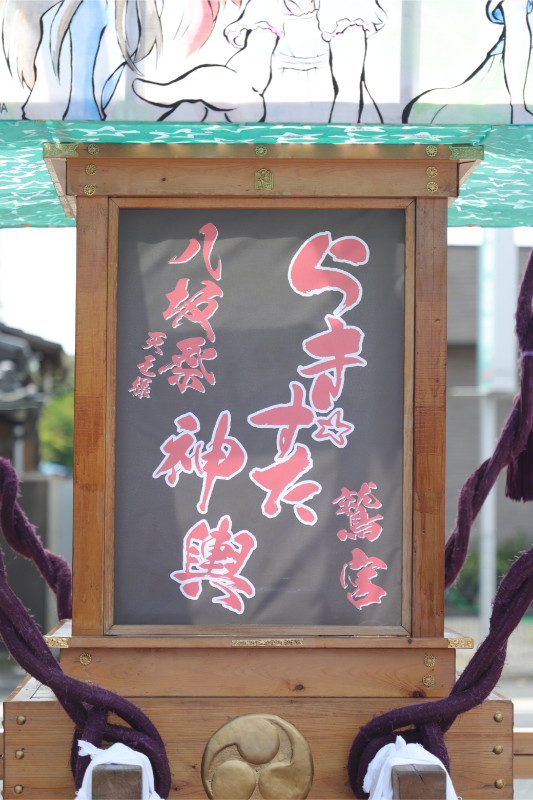 らき☆すた
鷲宮
神輿
八坂祭
天王様